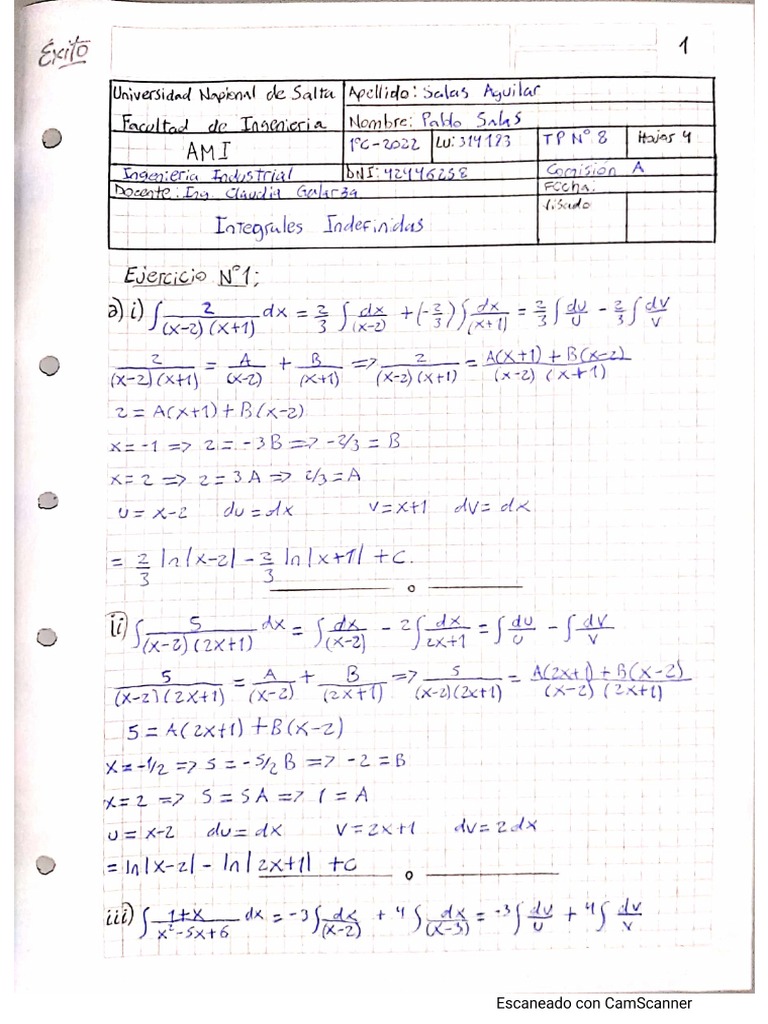 Éxito
1
Universidad Nacional de Salta Apellido: Salas Aguilar
Facultad de Ingenieria Nombre: Pablo Salas
AMI 1ºC-2022 LU: 314123 TP Nº 8 Hojas 4
Ingenieria Industrial DNI: 42446258 Comisión A
Docente: Ing. Claudia Galarza Fecha:
Visado
Integrales Indefinidas
Ejercicio Nº1;
a) i) ∫ 2/((x-2)(x+1)) dx = 2/3 ∫ dx/(x-2) + (-2/3) ∫ dx/(x+1) = 2/3 ∫ du/u - 2/3 ∫ dv/v
2/((x-2)(x+1)) = A/(x-2) + B/(x+1) => 2/((x-2)(x+1)) = (A(x+1) + B(x-2))/((x-2)(x+1))
2 = A(x+1) + B(x-2)
x = -1 => 2 = -3B => -2/3 = B
x = 2 => 2 = 3A => 2/3 = A
u = x-2 du = dx v = x+1 dv = dx
= 2/3 ln|x-2| - 2/3 ln|x+1| + c.
ii) ∫ 5/((x-2)(2x+1)) dx = ∫ dx/(x-2) - 2 ∫ dx/(2x+1) = ∫ du/u - ∫ dv/v
5/((x-2)(2x+1)) = A/(x-2) + B/(2x+1) => 5/((x-2)(2x+1)) = (A(2x+1) + B(x-2))/((x-2)(2x+1))
5 = A(2x+1) + B(x-2)
x = -1/2 => 5 = -5/2 B => -2 = B
x = 2 => 5 = 5A => 1 = A
u = x-2 du = dx v = 2x+1 dv = 2dx
= ln|x-2| - ln|2x+1| + c
iii) ∫ (1+x)/(x²-5x+6) dx = -3 ∫ dx/(x-2) + 4 ∫ dx/(x-3) = -3 ∫ du/u + 4 ∫ dv/v
Escaneado con CamScanner